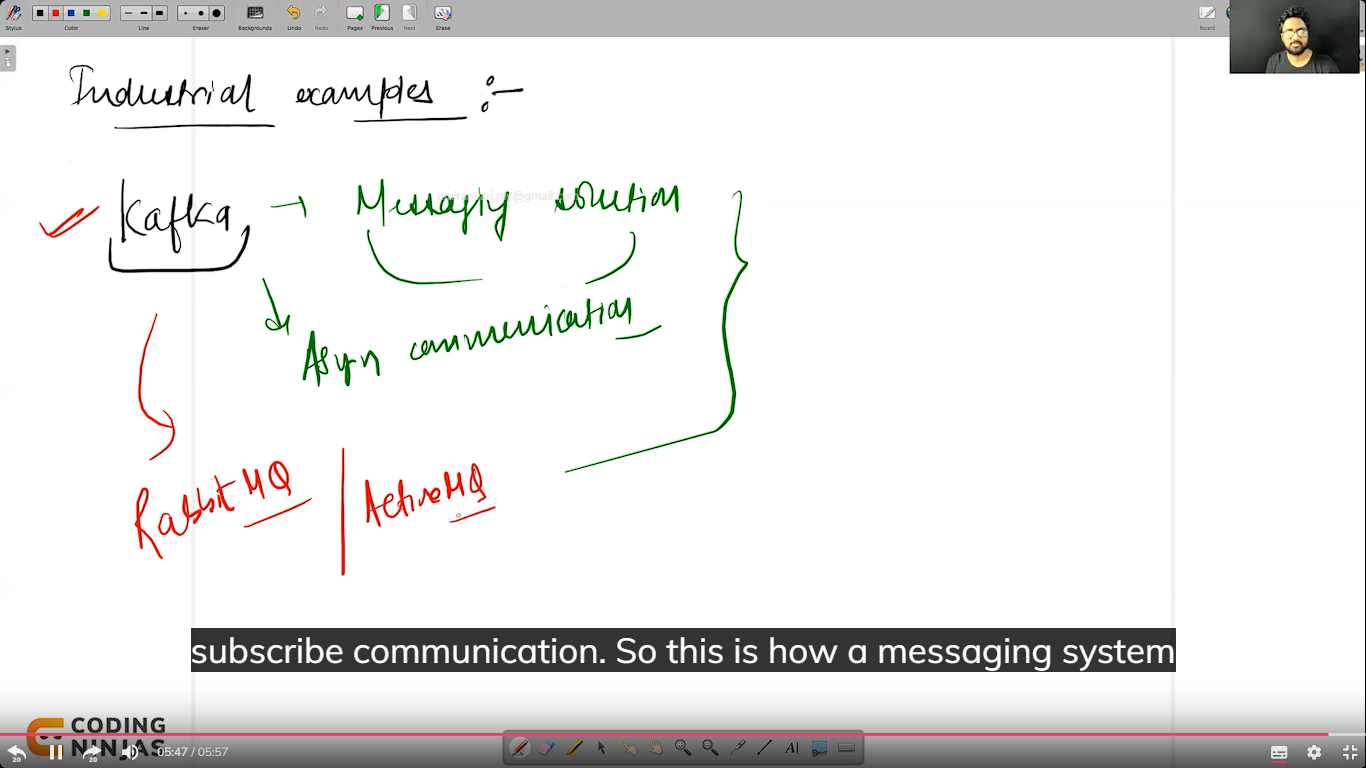 Stylus
Color
Line
Eraser
Backgrounds
Undo
Redo
Pages
Previous
Next
Erase
Board
Industrial examples :-
Kafka → Messaging solution
Asyn communication
RabbitMQ | ActiveMQ
subscribe communication. So this is how a messaging system
CODING
NINJAS
20
20
05:47 / 05:57
AI